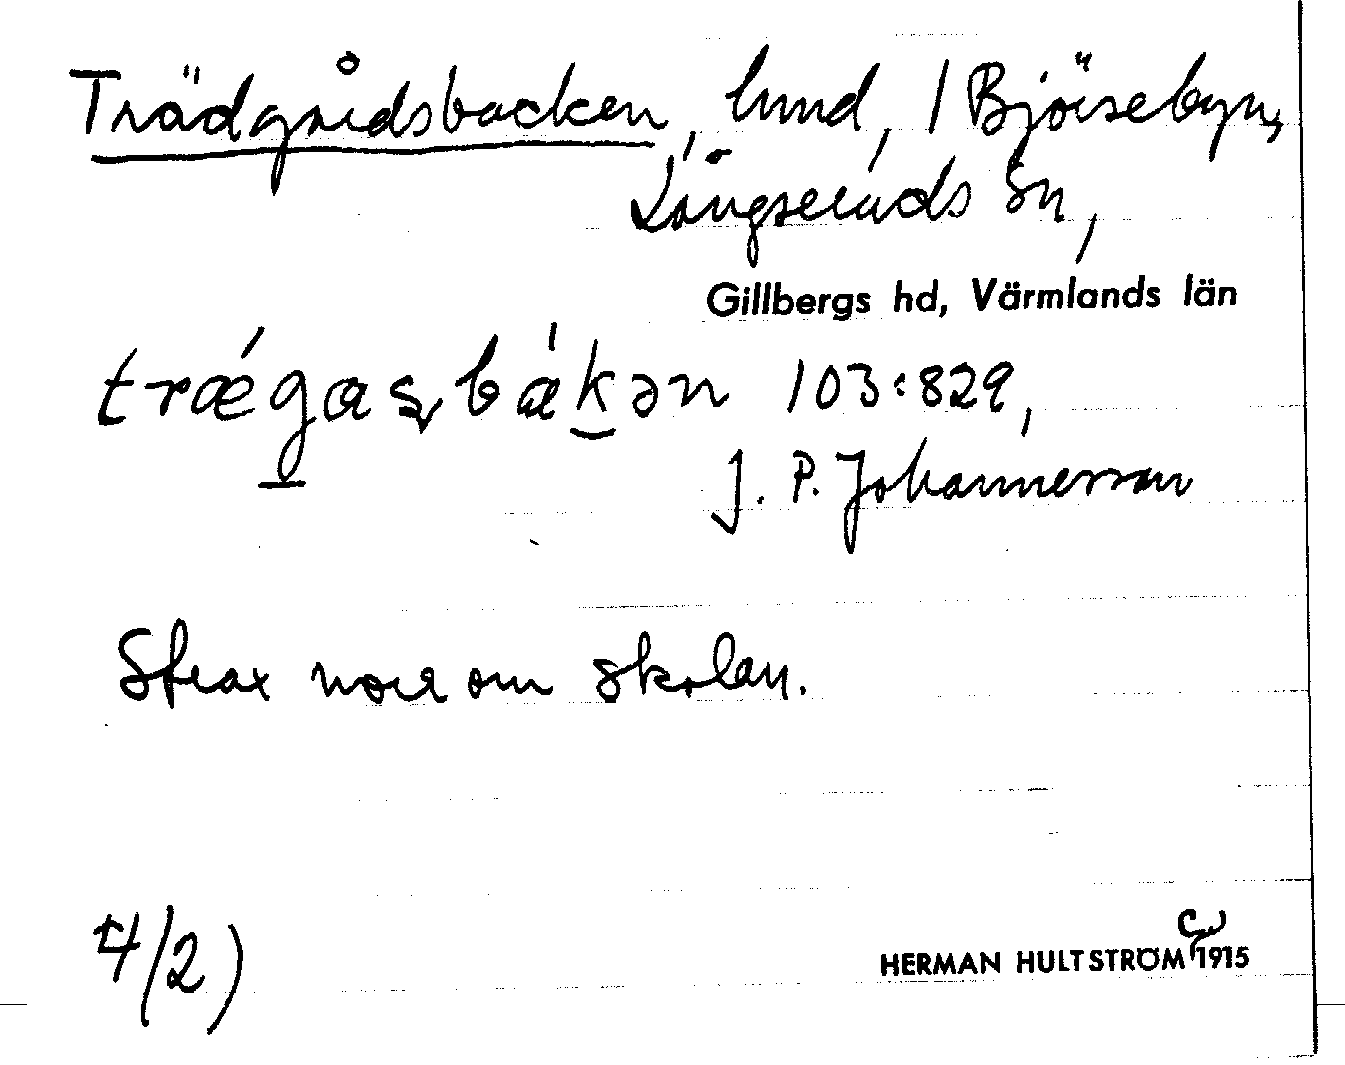 Trädgårdsbacken, lund, / Björsebyn,
Långseruds sn,
Gillbergs hd, Värmlands län
trǽgasbákən 103:829,
J. P. Johannesson
Strax norr om skolan.
4/2)
HERMAN HULTSTRÖM 1915